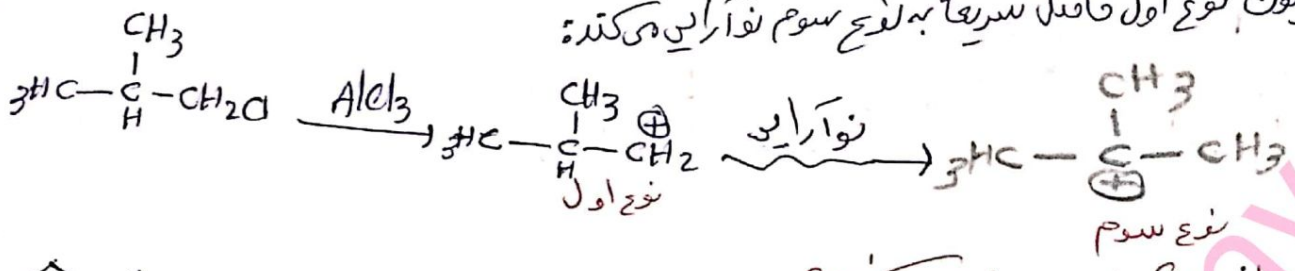 نوع اول حاصل سریعا به نوع سوم نوآرایی می‌کند:
CH3 CH3 CH3
3HC—C—CH2Cl AlCl3 3HC—C—CH2 ⊕ نوآرایی 3HC—C—CH3
H H ⊕
نوع اول نوع سوم